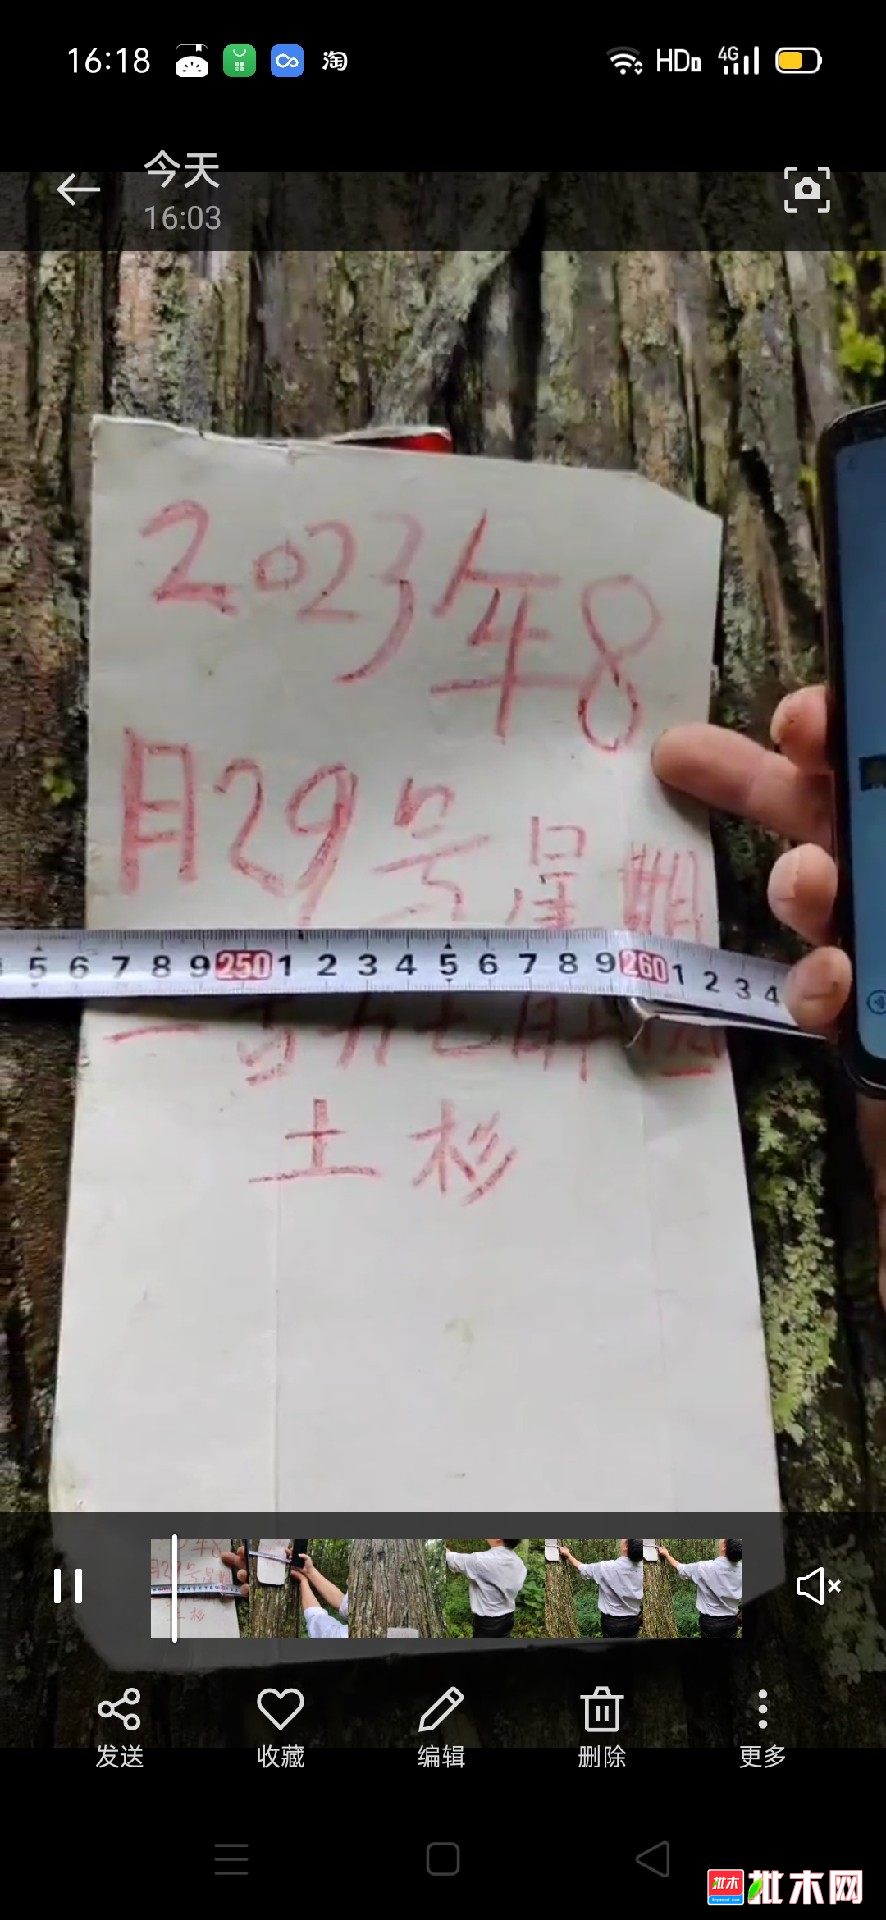 16:18 淘 HD 4G
今天
16:03
2023年8
月29号星期
5 6 7 8 9 250 1 2 3 4 5 6 7 8 9 260 1 2 3 4
土杉
发送 收藏 编辑 删除 更多
批木 批木网